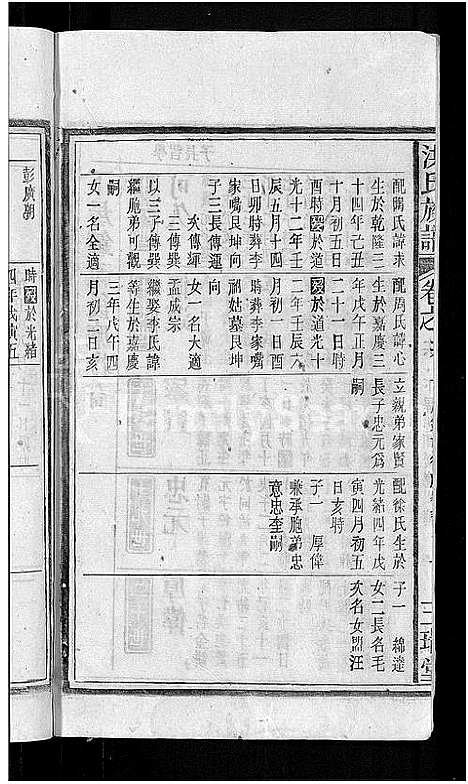 配關氏諱未
生於乾隆三
十四年己丑
十月初五日
酉時歿於道
光十二年壬
辰五月十四
日卯時葬李
家嘴艮坤向
子三長傳運
次傳緷
三傳巽
以三子傳巽
繼胞弟可觀
嗣
女一名全適
配周氏諱心
生於嘉慶三
年戊午正月
二十一日時
歿於道光十
二年壬辰六
月初一日酉
時葬李家嘴
祖姑墓艮坤
向
女一名大適
孟成宗
繼娶李氏諱
等生於嘉慶
三年戊午四
月初二日亥
立親弟家賢
長子忠元為
嗣
配徐氏生於
光緒四年戊
寅四月初五
日亥時
子一 厚偉
兼承胞弟忠
意忠奎嗣
子一 綿達
女二長名毛
次名女盟汪
氏族譜
三瑞堂
時歿於光緒
四年戊寅五